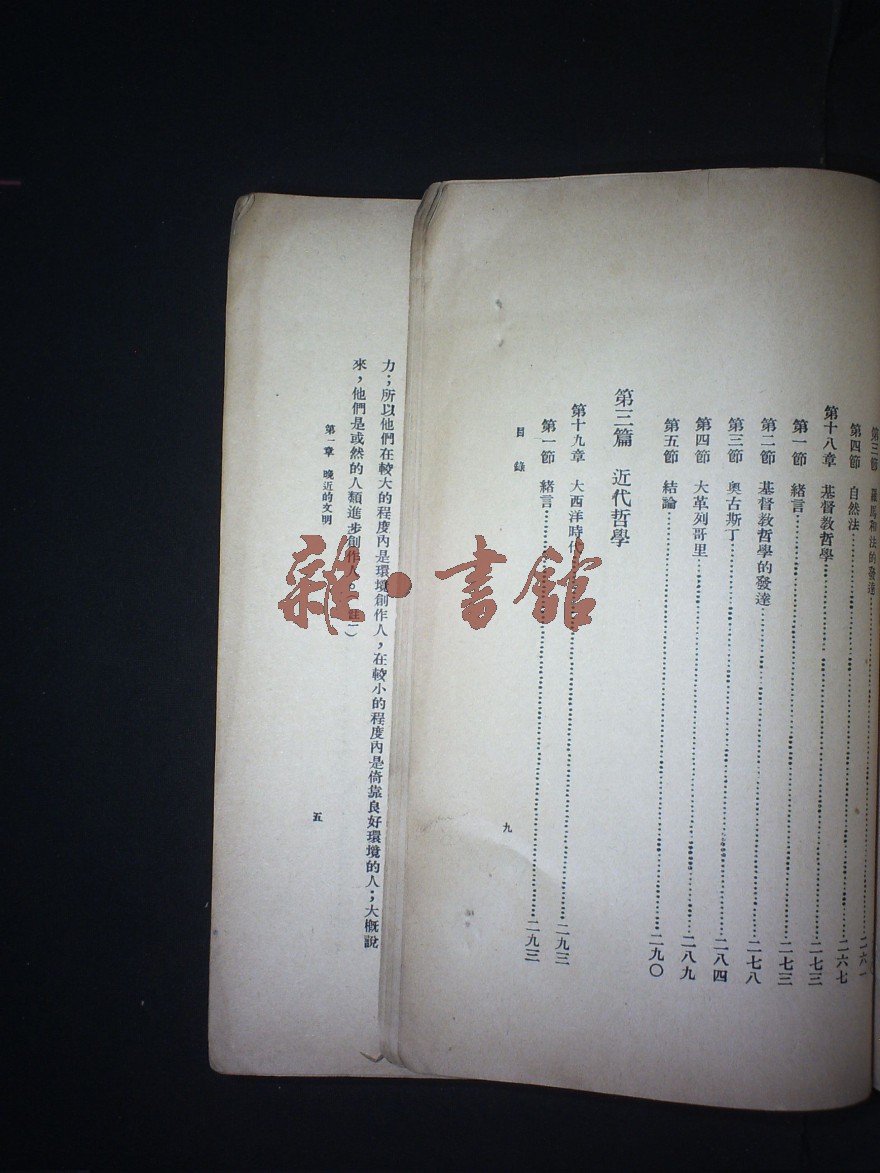 第三節 羅馬和法的發達……二六一
第四節 自然法……二六七
第十八章 基督教哲學……二七三
第一節 緒言……二七三
第二節 基督教哲學的發達……二七八
第三節 奧古斯丁……二八四
第四節 大革列哥里……二八九
第五節 結論……二九〇
第三篇 近代哲學
第十九章 大西洋時代……二九三
第一節 緒言……二九三
目錄
九
力；所以他們在較大的程度內是環境創作人，在較小的程度內是倚靠良好環境的人；大概說
來，他們是或然的人類進步創作人。（註一）
第一章 晚近的文明
五
雜·書館